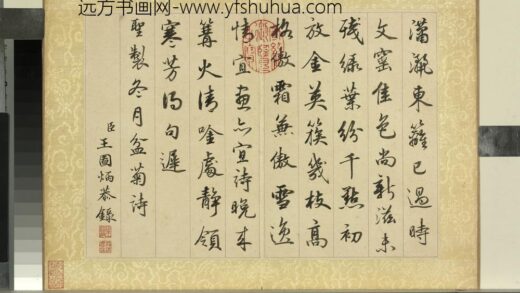 远方书画网-www.yfshuhua.com
瀟灑東籬已過時
文窯佳色尚新滋未
殘綠葉紛千點初
放金英簇幾枝高
格傲霜兼傲雪逸
情宜畫亦宜詩晚來
篝火清唫處靜領
寒芳得句遲
聖製冬月盆菊詩
臣王圖炳恭錄